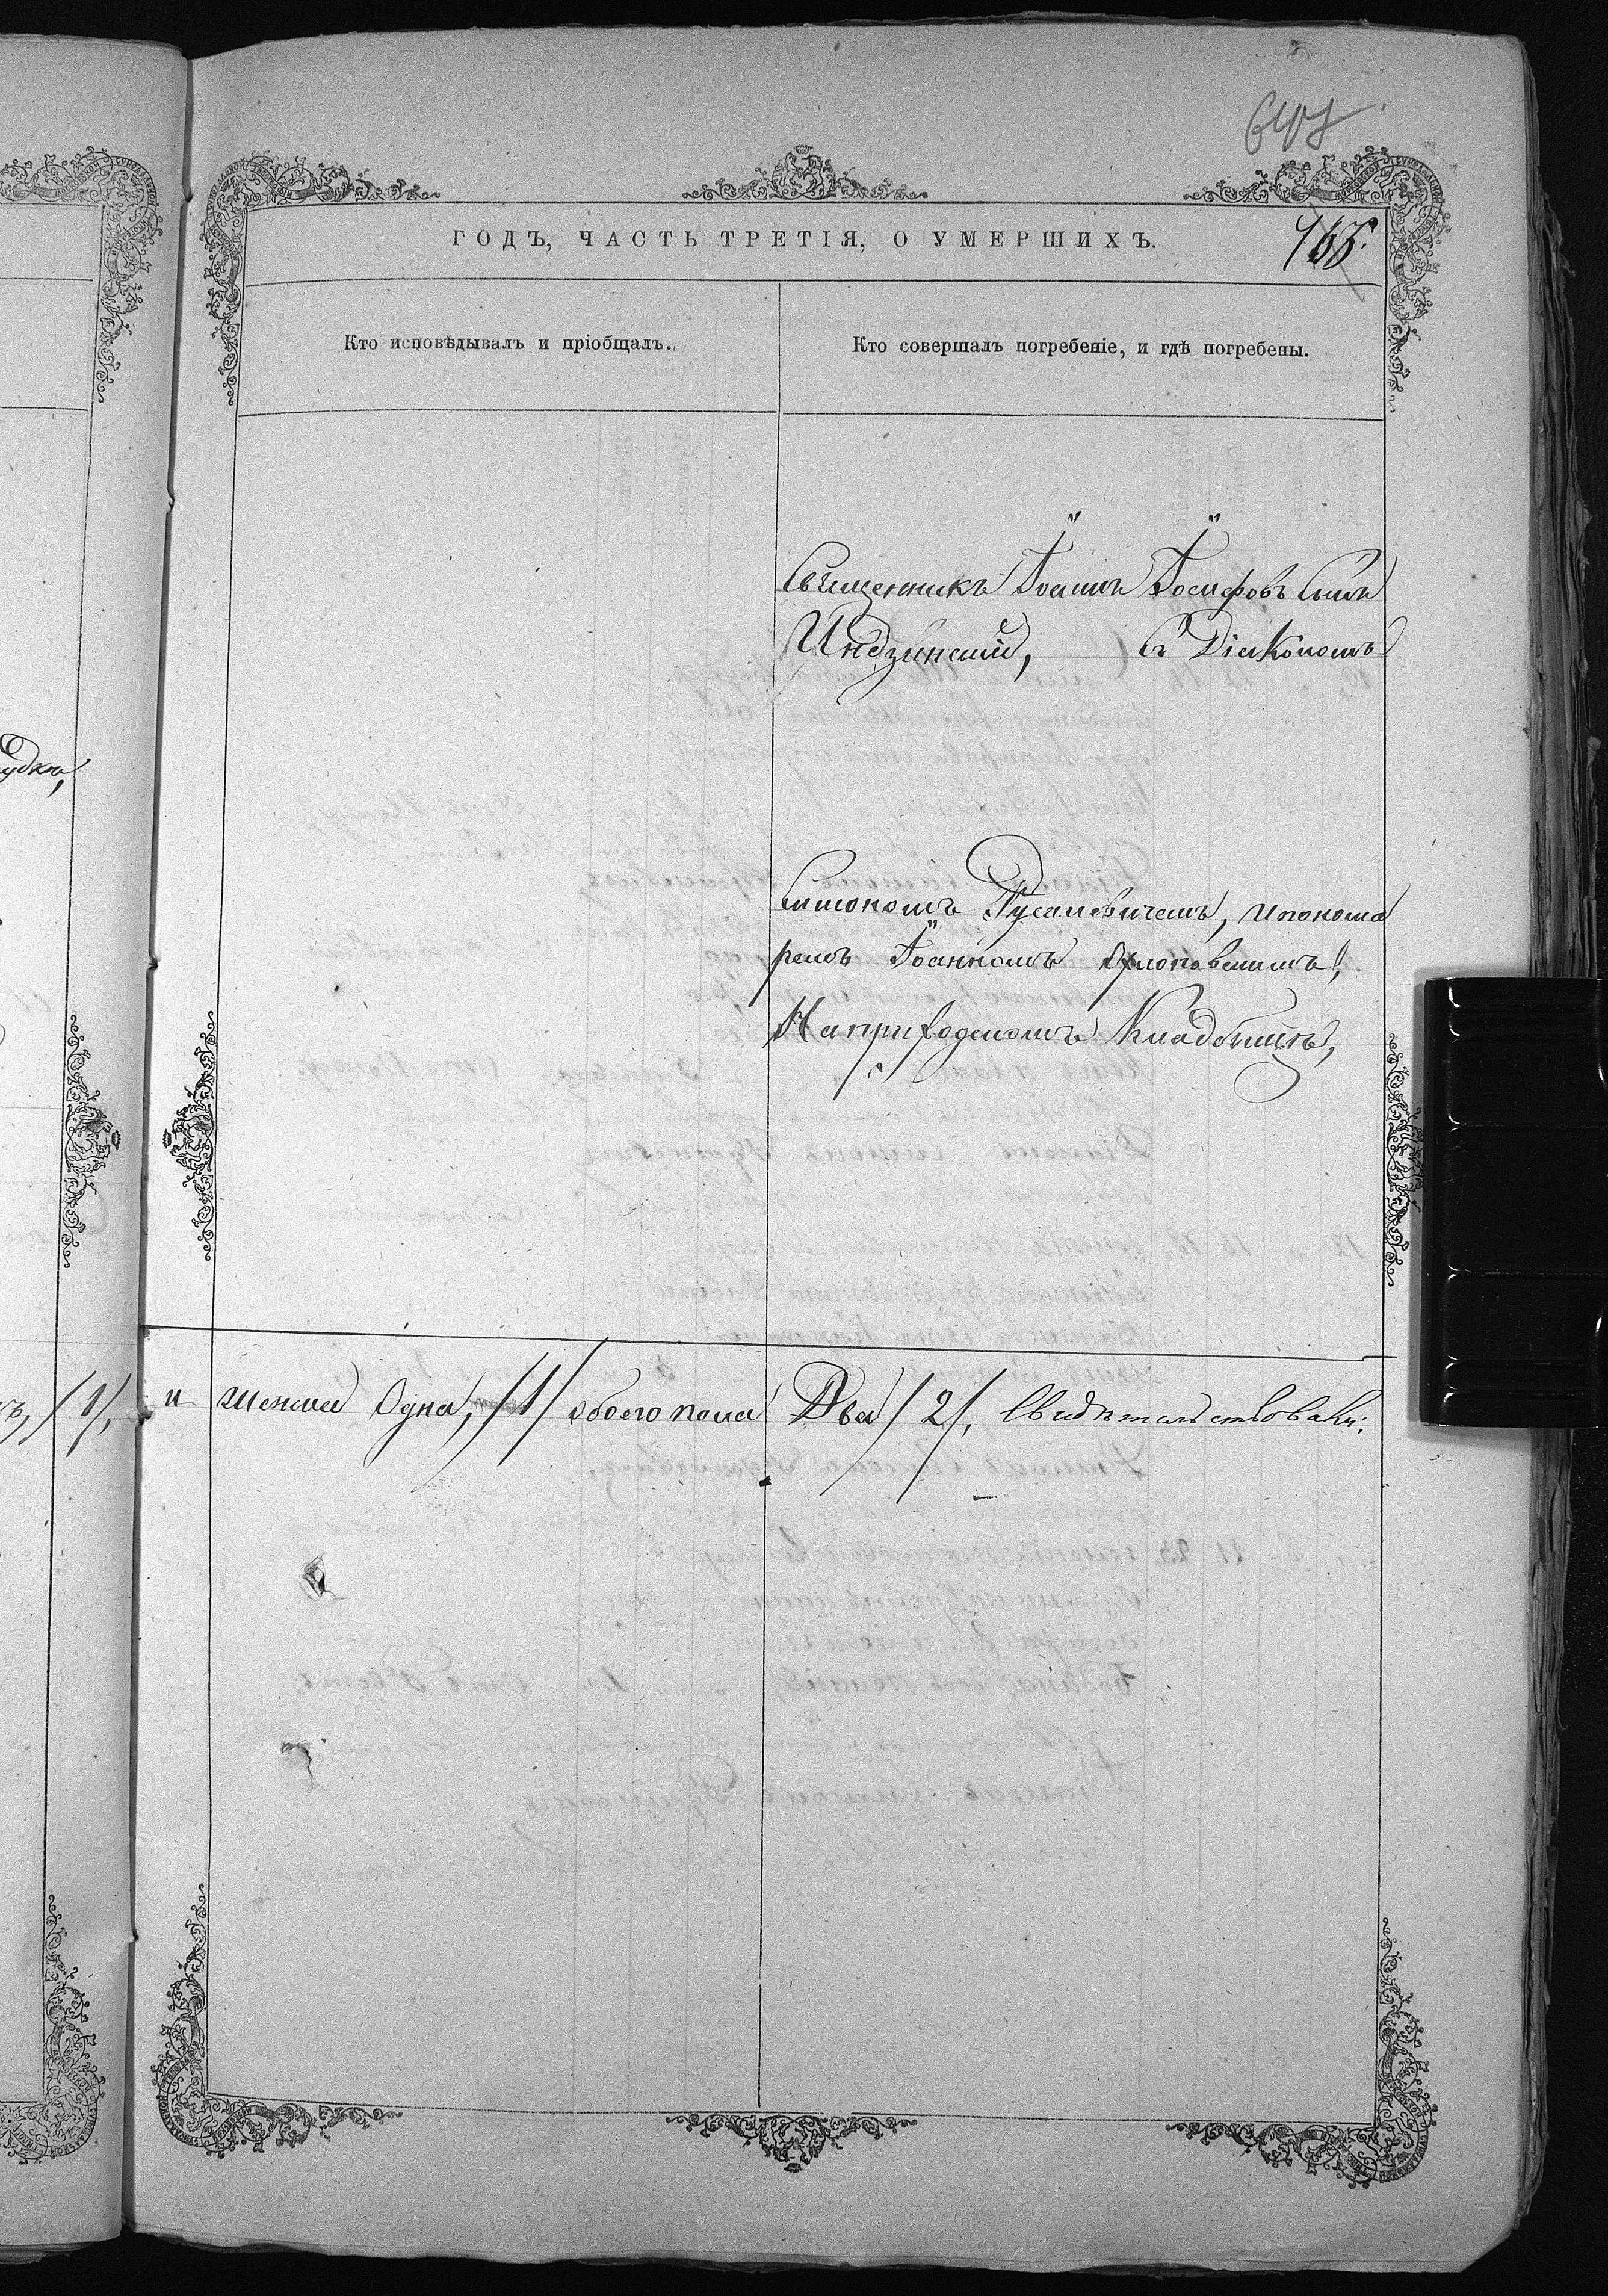 ГОДЪ, ЧАСТЬ ТРЕТІЯ, О УМЕРШИХЪ.
165.
Кто исповѣдывалъ и пріобщалъ.
Кто совершалъ погребеніе, и гдѣ погребены.
Священникъ Іоаннъ Іосифовъ Сынъ
Индзинскій, Съ Діакономъ
Симономъ Русаневичемъ, и понома
ремъ Іоанномъ
На приходскомъ Кладбищѣ,
/1/, и женска Одна, /1/ обоего пола Два /2/, Свидѣтельствовали: